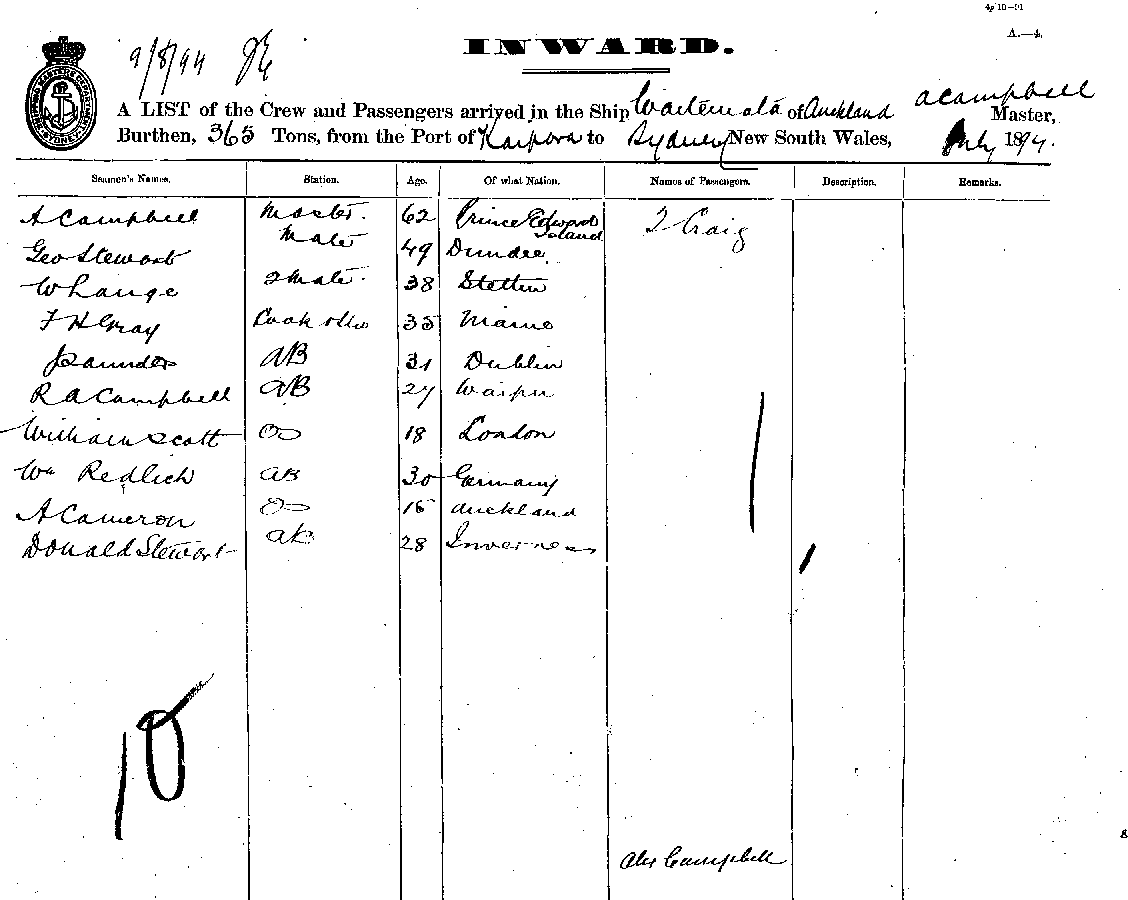 4g 10–91
A.—4.
9/8/94
INWARD.
A LIST of the Crew and Passengers arrived in the Ship Waitemata of Auckland ACampbell Master,
Burthen, 365 Tons, from the Port of Kaipara to Sydney New South Wales, July 1894.
Seamen's Names. Station. Age. Of what Nation. Names of Passengers. Description. Remarks.
A Campbell Master. 62 Prince Edward Island J Craig
Geo Stewart Mate 49 Dundee
W Lange 2 Mate. 38 Stettin
F H Gray Cook 35 Maine
Saunders AB 31 Dublin
R A Campbell AB 27 Waipu
William Scott OS 18 London
Wm Redlich AB 30 Germany
A Cameron OS 16 Auckland
Donald Stewart AB 28 Inverness
1
1
10
Alex Campbell